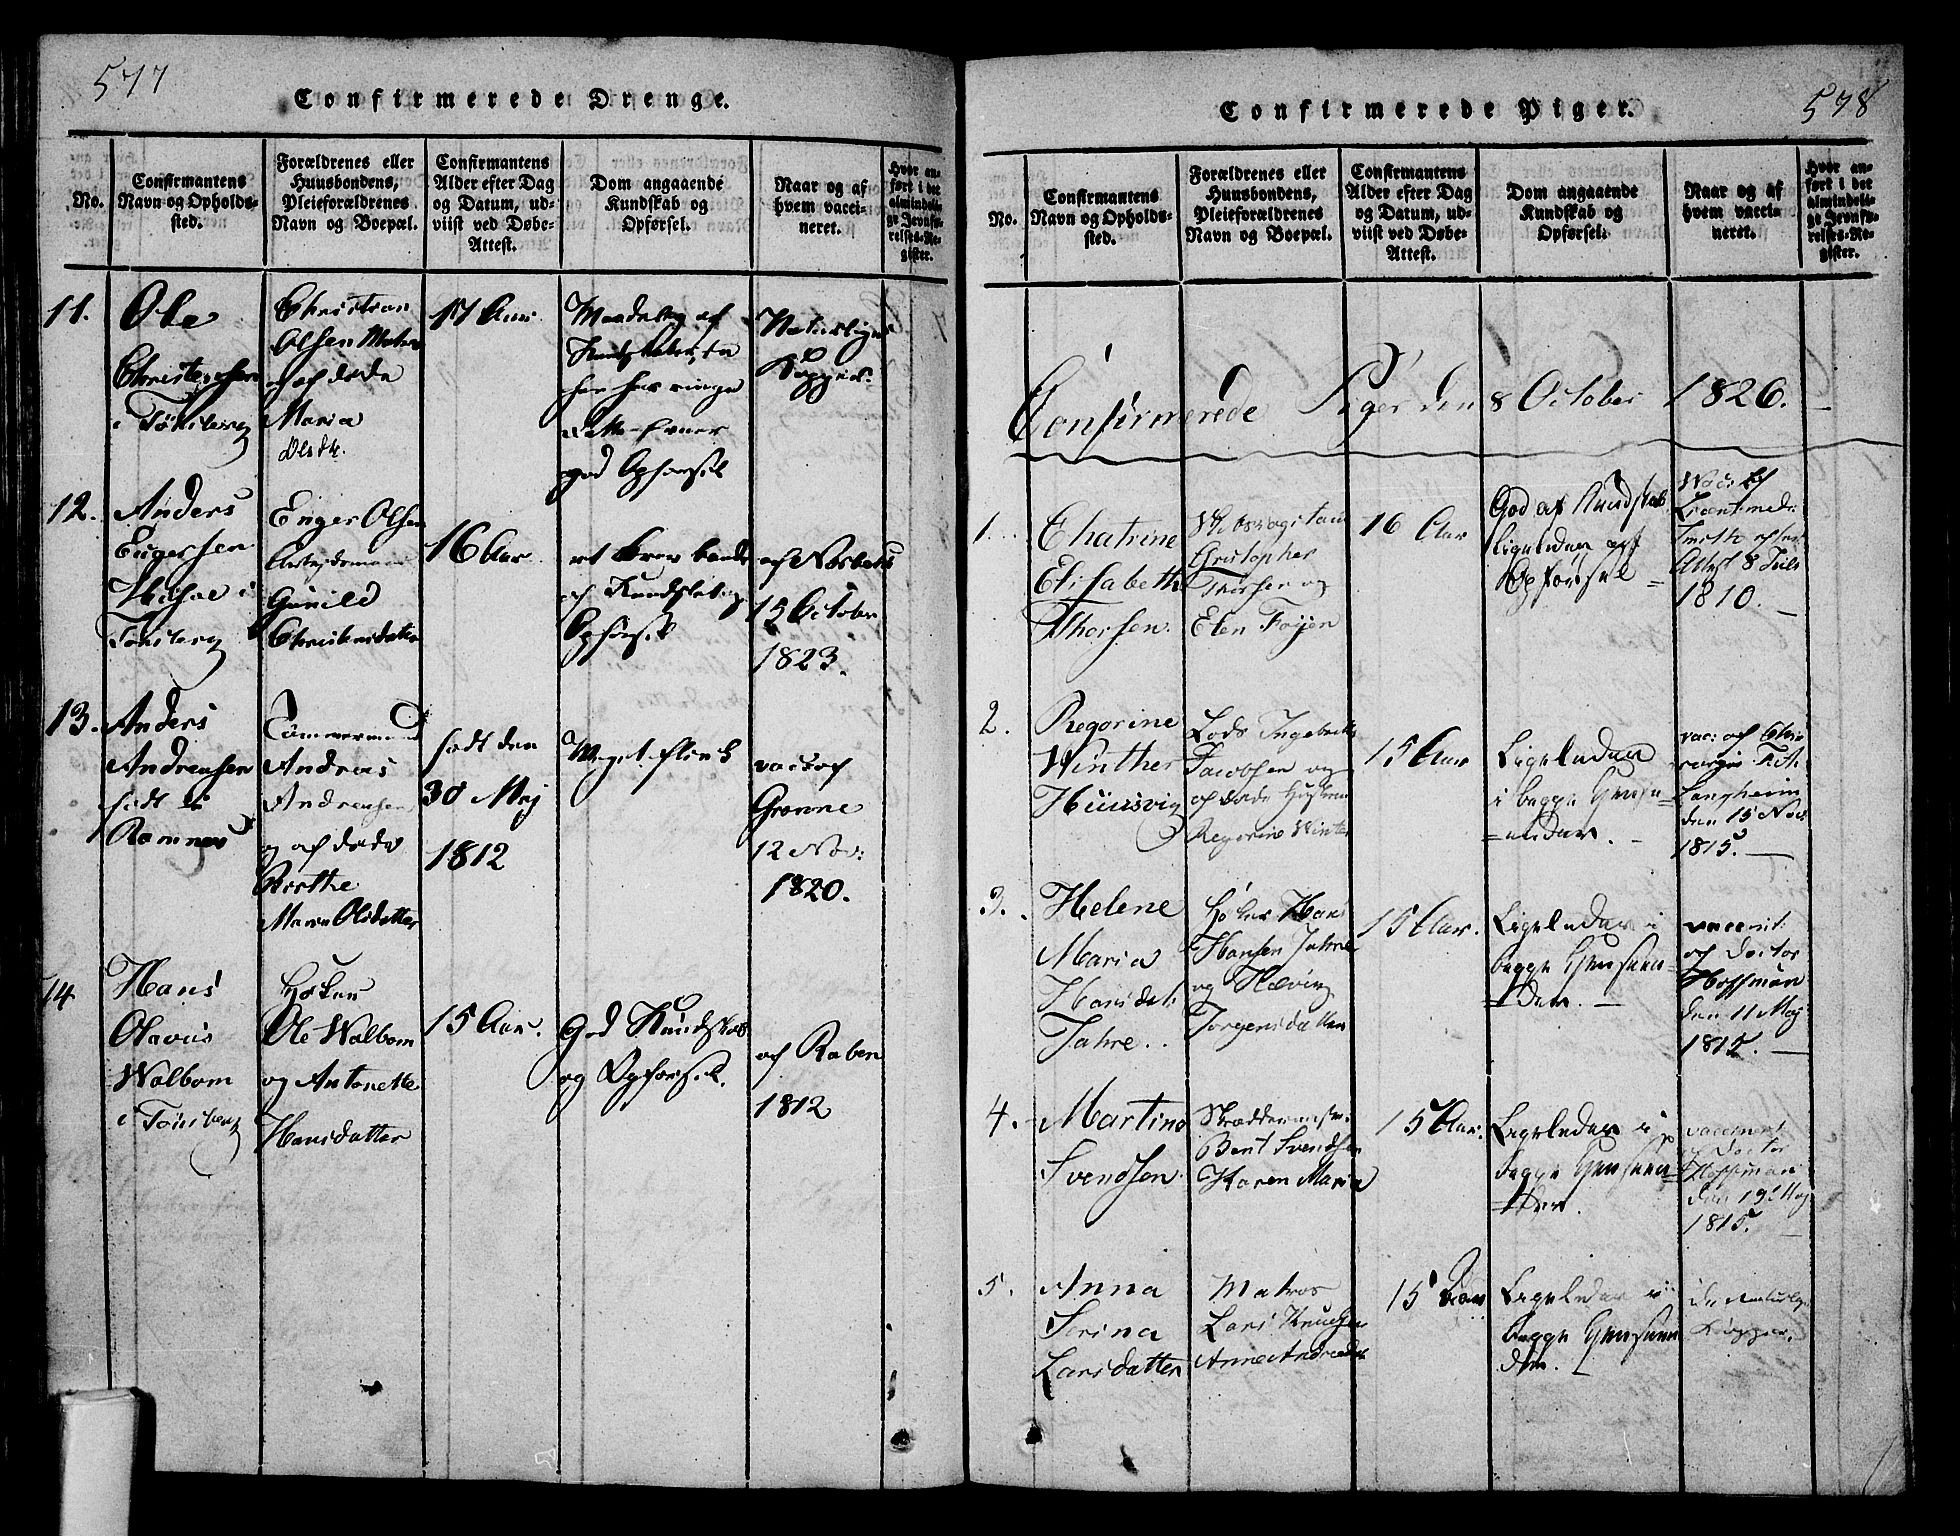 577
Confirmerede Drenge.
No.
Confirmantens
Navn og Opholds-
sted.
Forældrenes eller
Huusbondens,
Pleieforældrenes
Navn og Boepæl.
Confirmantens
Alder efter Dag
og Datum, ud-
viist ved Døbe-
Attest.
Dom angaaende
Kundskab og
Opførsel.
Naar og af
hvem vacci-
neret.
Hvor an-
ført i det
almindeli-
ge Jevnfø-
relses-Re-
gister.
11.
Ole
Christensen
i Tönsberg
Christian
Olsen
af døde
Maria
Olsdtr.
17 Aar
af
har ringe
god Opførsel
Naturlige
Kopper.
12.
Anders
Engersen
i
Tönsberg
Enger Olsen
Arbeidsmand
Gunild
Christensdatter
16 Aar
et
af Kundskab og
Opførsel
af
15 October
1823.
13.
Anders
Andreasen
født i
Ramnes
Tømmermand
Andreas
Andreasen
og afdøde
Birthe
Maria Olsdatter
født den
30 Maj
1812
Meget flink
vacc af
Grønne
12 Nov:
1820.
14
Hans
Olavus
Walbom
i Tönsberg
Høker
Ole Walbom
og Antonette
Hansdatter
15 Aar.
God Kundskab
og Opførsel.
af Raben
1812
578
Confirmerede Piger.
No.
Confirmantens
Navn og Opholds-
sted.
Forældrenes eller
Huusbondens,
Pleieforældrenes
Navn og Boepæl.
Confirmantens
Alder efter Dag
og Datum, ud-
viist ved Døbe-
Attest.
Dom angaaende
Kundskab og
Opførsel.
Naar og af
hvem vacci-
neret.
Hvor an-
ført i det
almindeli-
ge Jevnfø-
relses-Re-
gister.
Confirmerede Piger den 8 October 1826.
1.
Chatrine
Elisabeth
Thorsen.
Christopher
Thorsen og
Elen Foyen
16 Aar
God af Kundskab
ligeledes af
Opførsel
Vacc af
efter
Attest 8 Juli
1810.
2.
Regorine
Winther
Huusvig
Lods Ingebret
Jacobsen og
afdøde Hustrue
Regorine Winter
15 Aar
Ligeledes
i begge Hense-
ender.
vac: af Chi-
rurgus
Langheim
den 15 Nov
1815.
3.
Helene
Maria
Hansdat:
Jahre.
Høker Hans
Hansen Jahre
og
Jørgensdatter
15 Aar.
Ligeledes i
begge Henseen-
der.
vaccenit:
af Doctor
Hoffman
den 11 Maj
1815.
4.
Martine
Svendsen
Skræddermester
Bent Svendsen
Karen Maria
15 Aar.
Ligeledes i
begge Henseen-
der.
vaccinert
af Doctor
Hoffman
den 19 Maj
1815.
5.
Anna
Sorina
Larsdatter
Matros
Lars Knudsen
Anne Andreadat
15 Aar
Ligeledes i
begge Henseen
der.
de naturlige
Kopper.